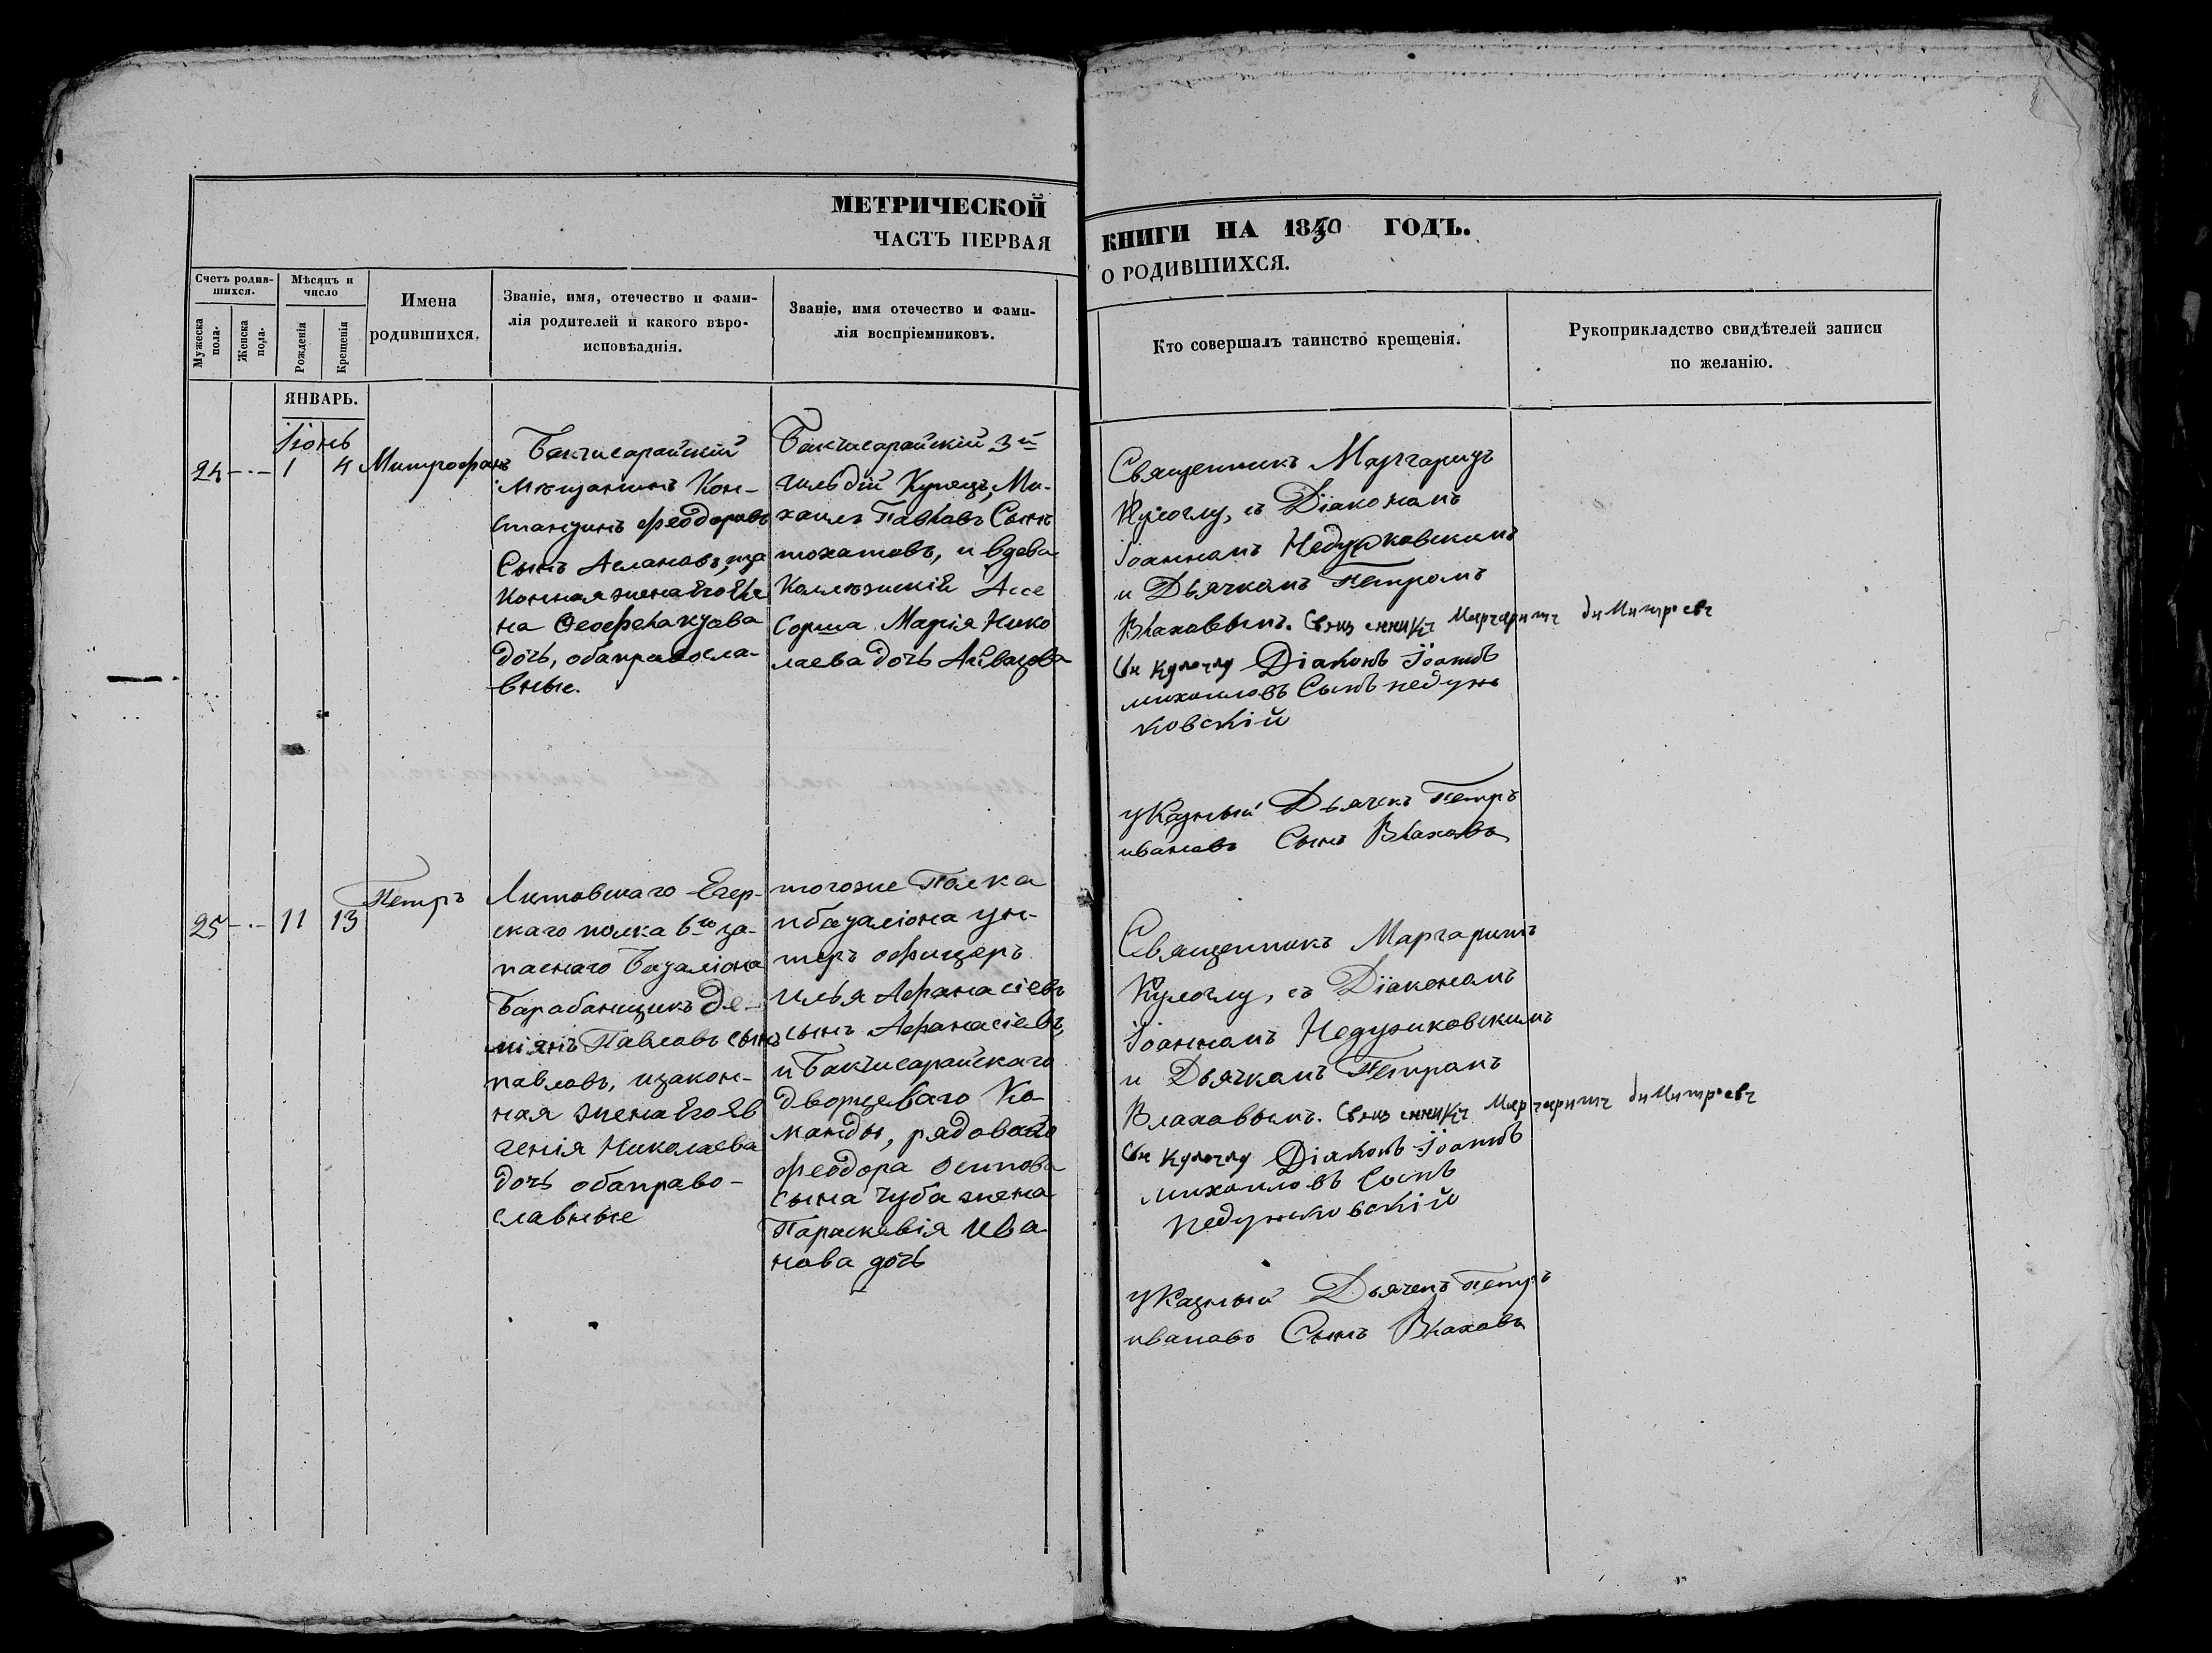 МЕТРИЧЕСКОЙ
ЧАСТЬ ПЕРВАЯ
КНИГИ НА 1850 ГОДЪ.
О РОДИВШИХСЯ.
Счетъ родив-
шихся.
Мужеска
пола.
Женска
пола.
Мѣсяцъ и
число
Рожденія
Крещенія
Имена
родившихся.
Званіе, имя, отечество и фами-
лія родителей и какого вѣро-
исповѣаднія.
Званіе, имя отечество и фами-
лія воспріемниковъ.
Кто совершалъ таинство крещенія.
Рукоприкладство свидѣтелей записи
по желанію.
ЯНВАРЬ.
Іюнь
24 -·- 1 4 Митрофанъ
Бакчисарайскій
мѣщанинъ Кон-
стандинъ Феодоровъ
Сынъ Аслановъ, иза
конная жена Его Еле
на Феофелакдова
дочь, оба правосла-
вные.
Бакчисарайскій 3й
гильдіи Купецъ, Ми-
хаилъ Павловъ Сынъ
тохатовъ, и вдова
Коллежскій Ассе
сорша Марія Нико
лаева дочь Айвазова
Священникъ Маргаридъ
Кулоглу, съ Діаконамъ
Іоаннамъ Недужковскимъ
и Дьячкамъ Петромъ
Влаховымъ. Священникъ Маргаритъ димитріевъ
Сын Кулоглу Діаконъ Іоаннъ
михаиловъ Сынъ недужи
ковскій
указный Дьячекъ Петръ
ивановъ Сынъ Влаховъ
25 -·- 11 13 Петръ
Литовскаго Егер-
скаго полка 6го за-
паснаго Баталіона
Барабанщикъ Де-
міянъ Павловъ сынъ
павловъ, изакон-
ная жена Его Ев
генія Николаева
дочь оба право-
славные
тогоже Полка
и баталіона ун-
теръ офицеръ
Илья Афанасіевъ
сынъ Афанасіевъ,
и Бакчисарайскаго
дворцеваго Ко-
манды, рядоваго
Феодора осипова
сына чуба жена
Параскевія Ива-
нова дочь
Священникъ Маргаритъ
Кулоглу, съ Діаконамъ
Іоаннамъ Недужиковскимъ
и Дьячкамъ Петрамъ
Влаховымъ. Священникъ Маргаритъ димитріевъ
Сын Кулоглу Діаконъ Іоаннъ
михаиловъ Сынъ
недужиковскій
указный Дьячекъ Петръ
ивановъ Сынъ Влаховъ